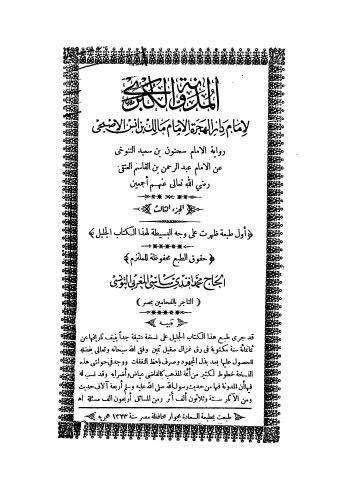 المدونة الكبرى
لإمام دار الهجرة الإمام مالك بن أنس الأصبحي
رواية الامام سحنون بن سعيد التنوخي
عن الامام عبد الرحمن بن القاسم العتقي
رضي الله تعالى عنهم أجمعين
﴿الجزء الثالث﴾
﴿أول طبعة ظهرت على وجه البسيطة لهذا الكتاب الجليل﴾
﴿حقوق الطبع محفوظة للملتزم﴾
الحاج محمد أفندي ساسي المغربي التونسي
(التاجر بالفحامين بمصر)
تنبيه
قد جرى طبع هذا الكتاب الجليل على نسخة عتيقة جداً ينيف تاريخها عن
ثمانمائة سنة مكتوبة في رق غزال صقيل ثمين وفق الله سبحانه وتعالى بفضله
للحصول عليها بعد بذل المجهود وصرف باهظ النفقات ووجد في حواشي هذه
النسخة خطوط لكثير من أئمة المذهب كالقاضي عياض وأضرابه وقد نسب له
فيها أن المدونة فيها من حديث رسول الله صلى الله عليه وسلم أربعة آلاف حديث
ومن الآثار ستة وثلاثون ألف أثر ومن المسائل أربعون الف مسئلة اه
طبعت بمطبعة السعادة بجوار محافظة مصر سنة ١٣٢٣ هجريه